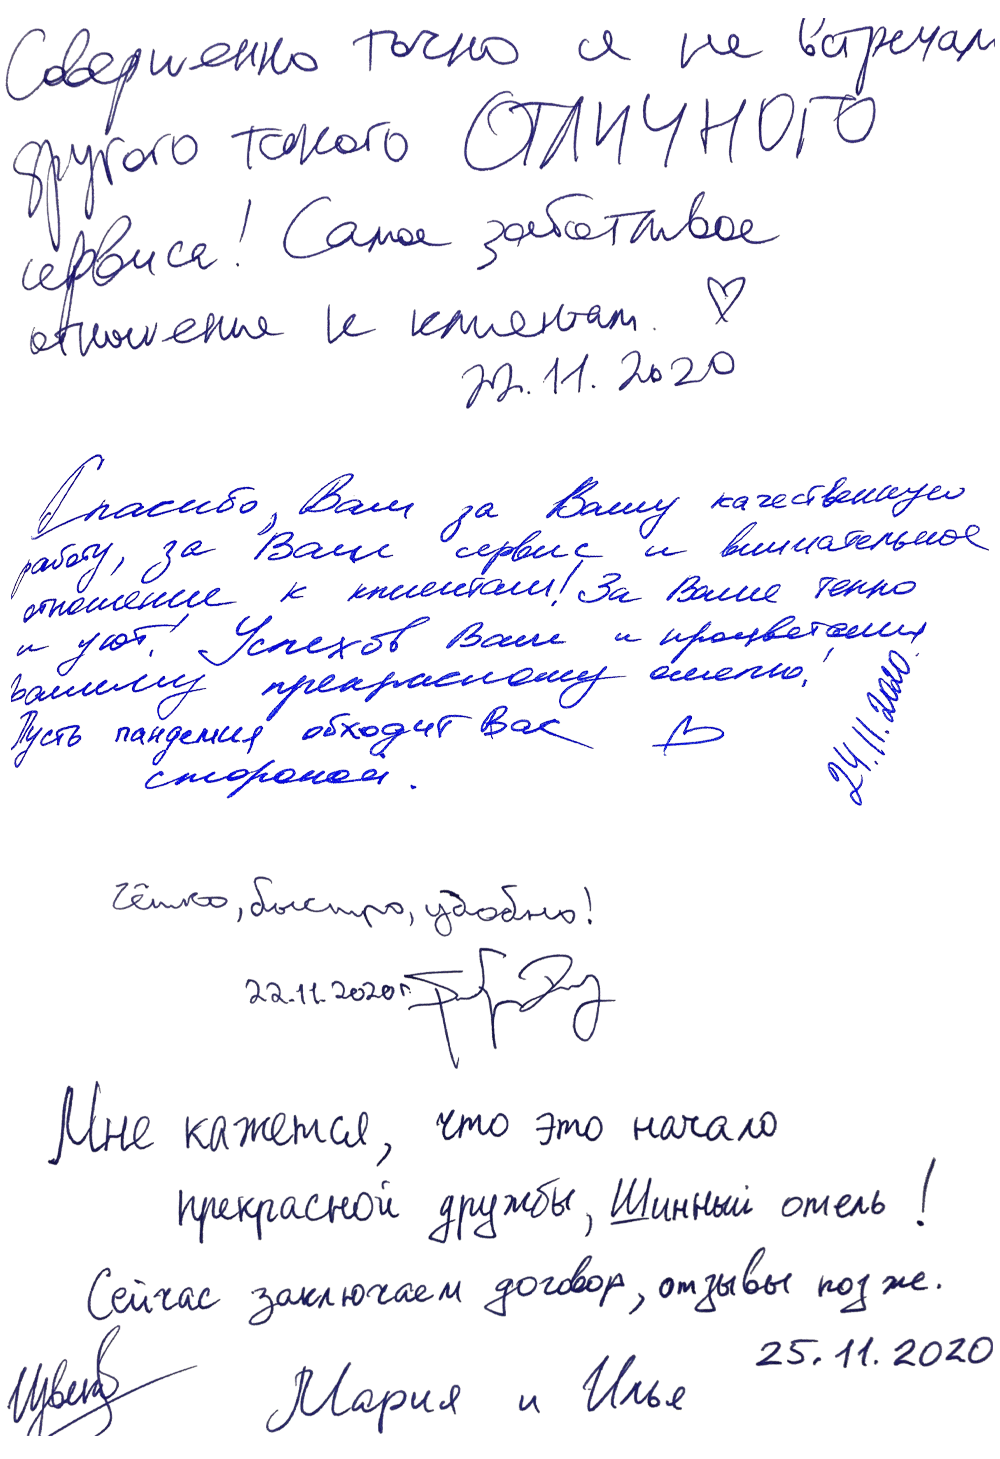 Совершенно точно я не встречал
другого такого ОТЛИЧНОГО
сервиса! Самое заботливое
отношение к клиентам. ♡
22.11.2020
Спасибо, Вам за Вашу качественную
работу, за Ваш сервис и внимательное
отношение к клиентам! За Ваше тепло
и уют! Успехов Вам и процветания
вашему прекрасному отелю!
Пусть пандемия обходит Вас
стороной.
24.11.2020.
Чётко, быстро, удобно!
22.11.2020г.
Мне кажется, что это начало
прекрасной дружбы, Шинный отель!
Сейчас заключаем договор, отзывы позже.
25.11.2020
Мария и Илья